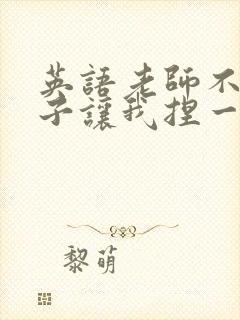 英語老師不
子讓我捏一
黎萌